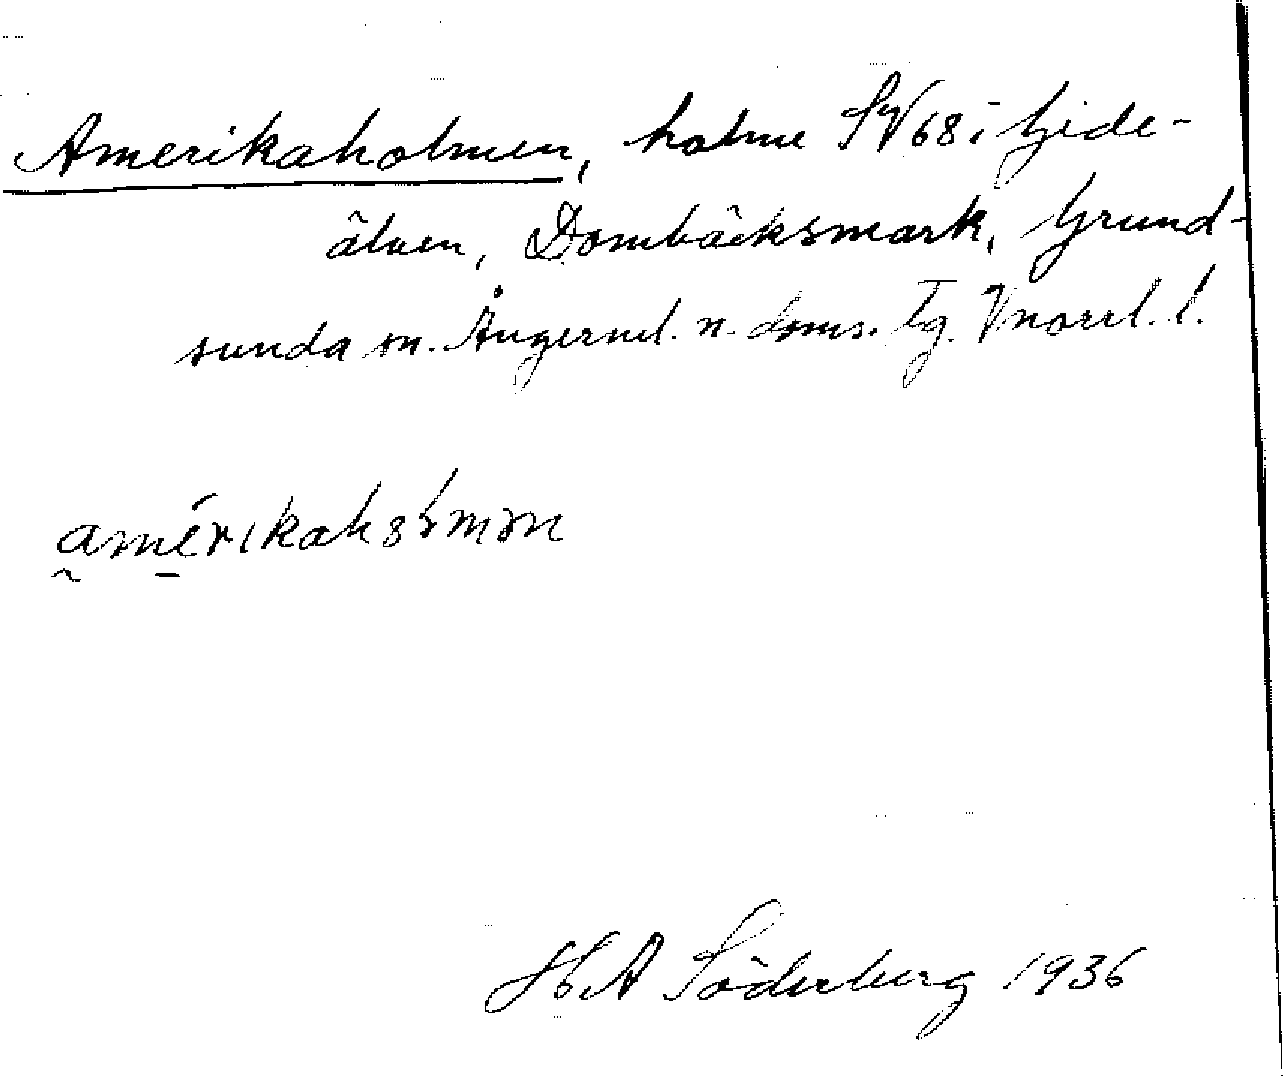 Amerikaholmen, holme SV 68 i Gide-
älven, Dombäcksmark, Grund-
sunda sn. Ångerml. n. doms. tg. Vnorrl. l.
amérikahɷlmən
H A Söderberg 1936